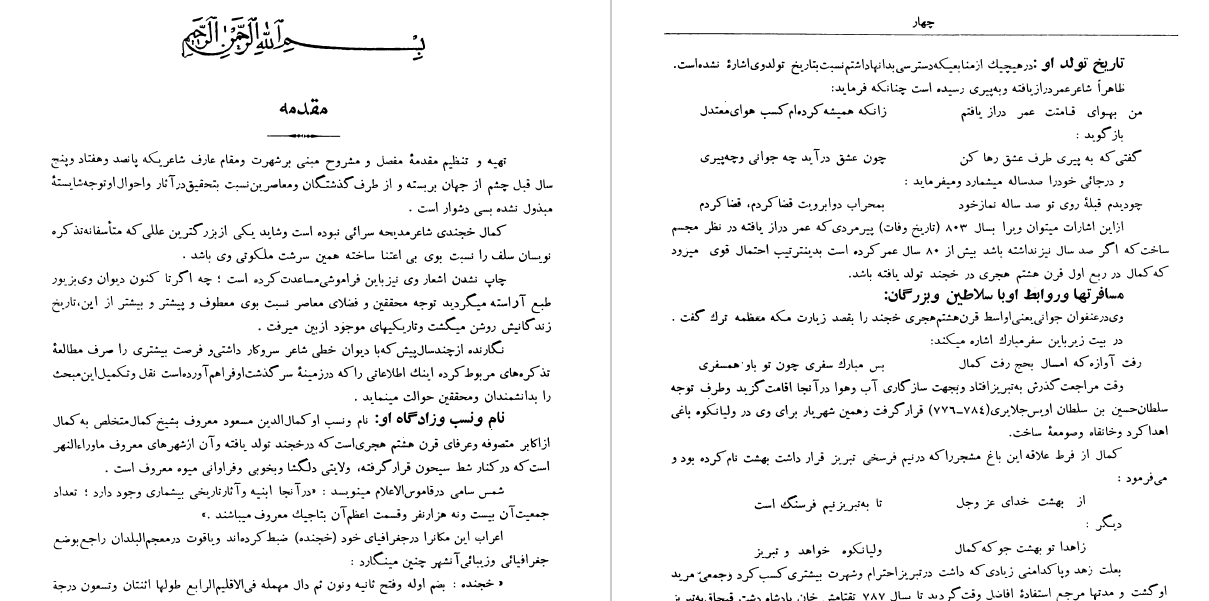 بسم الله الرحمن الرحیم
مقدمه
تهیه و تنظیم مقدمهٔ مفصل و مشروح مبنی برشهرت ومقام عارف شاعریکه پانصد وهفتاد وپنج
سال قبل چشم از جهان بربسته و از طرف گذشتگان ومعاصرین نسبت بتحقیق درآثار واحوال اوتوجه شایستهٔ
مبذول نشده بسی دشوار است .
کمال خجندی شاعر مدیحه سرائی نبوده است وشاید یکی ازبزرگترین عللی که متأسفانه تذکره
نویسان سلف را نسبت بوی بی اعتنا ساخته همین سرشت ملکوتی وی باشد .
چاپ نشدن اشعار وی نیزباین فراموشی مساعدت کرده است ؛ چه اگر تا کنون دیوان وی بزیور
طبع آراسته میگردید توجه محققین و فضلای معاصر نسبت بوی معطوف و پیشتر و بیشتر از این، تاریخ
زندگانیش روشن میگشت وتاریکیهای موجود ازبین میرفت .
نگارنده ازچندسال پیش که با دیوان خطی شاعر سروکار داشتی و فرصت بیشتری را صرف مطالعهٔ
تذکره‌های مربوط کرده اینك اطلاعاتی را که درزمینهٔ سرگذشت اوفراهم آورده است نقل وتکمیل این مبحث
را بدانشمندان ومحققین حوالت مینماید .
نام ونسب وزادگاه او: نام ونسب او کمال‌الدین مسعود معروف بشیخ کمال متخلص به کمال
ازاکابر متصوفه وعرفای قرن هشتم هجری است که درخجند تولد یافته وآن ازشهرهای معروف ماوراءالنهر
است که درکنار شط سیحون قرارگرفته، ولایتی دلگشا وبخوبی وفراوانی میوه معروف است .
شمس سامی درقاموس‌الاعلام مینویسد : «درآنجا ابنیه وآثارتاریخی بیشماری وجود دارد ؛ تعداد
جمعیت آن بیست ونه هزارنفر وقسمت اعظم آن بتاجیك معروف میباشند .»
اعراب این مکانرا درجغرافیای خود (خجنده) ضبط کرده‌اند ویاقوت درمعجم‌البلدان راجع بوضع
جغرافیائی وزیبائی آنشهر چنین مینگارد :
« خجنده : بضم اوله وفتح ثانیه ونون ثم دال مهمله فی‌الاقلیم الرابع طولها اثنتان وتسعون درجة
چهار
تاریخ تولد او : درهیچیك ازمنابعیکه دسترسی بدانها داشتم نسبت بتاریخ تولدوی اشارهٔ نشده است .
ظاهراً شاعر عمر دراز یافته وبه پیری رسیده است چنانکه فرماید:
من بهوای قامتت عمر دراز یافتم زانکه همیشه کرده‌ام کسب هوای معتدل
بازگوید :
گفتی که به پیری طرف عشق رها کن چون عشق درآید چه جوانی وچه پیری
و درجائی خودرا صدساله میشمارد ومیفرماید :
چودیدم قبلهٔ روی تو صد ساله نماز خود بمحراب دوابرویت قضا کردم، قضا کردم
ازاین اشارات میتوان ویرا بسال ۸۰۳ (تاریخ وفات) پیرمردی که عمر دراز یافته در نظر مجسم
ساخت که اگر صد سال نیز نداشته باشد بیش از ۸۰ سال عمر کرده است بدینترتیب احتمال قوی میرود
که کمال در ربع اول قرن هشتم هجری در خجند تولد یافته باشد.
مسافرتها وروابط اوبا سلاطین وبزرگان:
وی‌درعنفوان جوانی‌یعنی‌اواسط قرن‌هشتم‌هجری خجند را بقصد زیارت مکه معظمه ترك گفت .
در بیت زیر باین سفر مبارك اشاره میکند:
رفت آوازه که امسال بحج رفت کمال بس مبارك سفری چون تو باو، همسفری
وقت مراجعت گذرش به‌تبریز افتاد وبجهت سازگاری آب وهوا درآنجا اقامت گزید وطرف توجه
سلطان‌حسین بن سلطان اویس‌جلایری(۷۸۴-۷۷۶) قرارگرفت وهمین شهریار برای وی در ولیانکوه باغی
اهدا کرد وخانقاه وصومعهٔ ساخت.
کمال از فرط علاقه این باغ مشجر را که درنیم فرسخی تبریز قرار داشت بهشت نام کرده بود و
می‌فرمود :
از بهشت خدای عز وجل تا به‌تبریز نیم فرسنگ است
دیگر :
زاهدا تو بهشت جو که کمال ولیانکوه خواهد و تبریز
بعلت زهد وپاکدامنی زیادی که داشت درتبریز احترام وشهرت بیشتری کسب کرد وجمعی مرید
او گشت و مدتها مرجع استفادهٔ افاضل وقت گردید تا بسال ۷۸۷ تقتامش خان پادشاه دشت قبچاق به‌تبریز